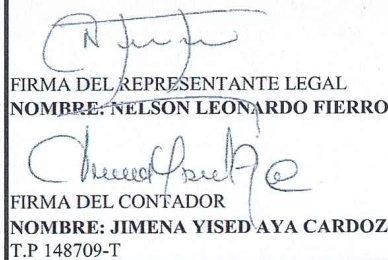 FIRMA DEL REPRESENTANTE LEGAL
NOMBRE: NELSON LEONARDO FIERRO
FIRMA DEL CONTADOR
NOMBRE: JIMENA YISED AYA CARDOZ
T.P 148709-T